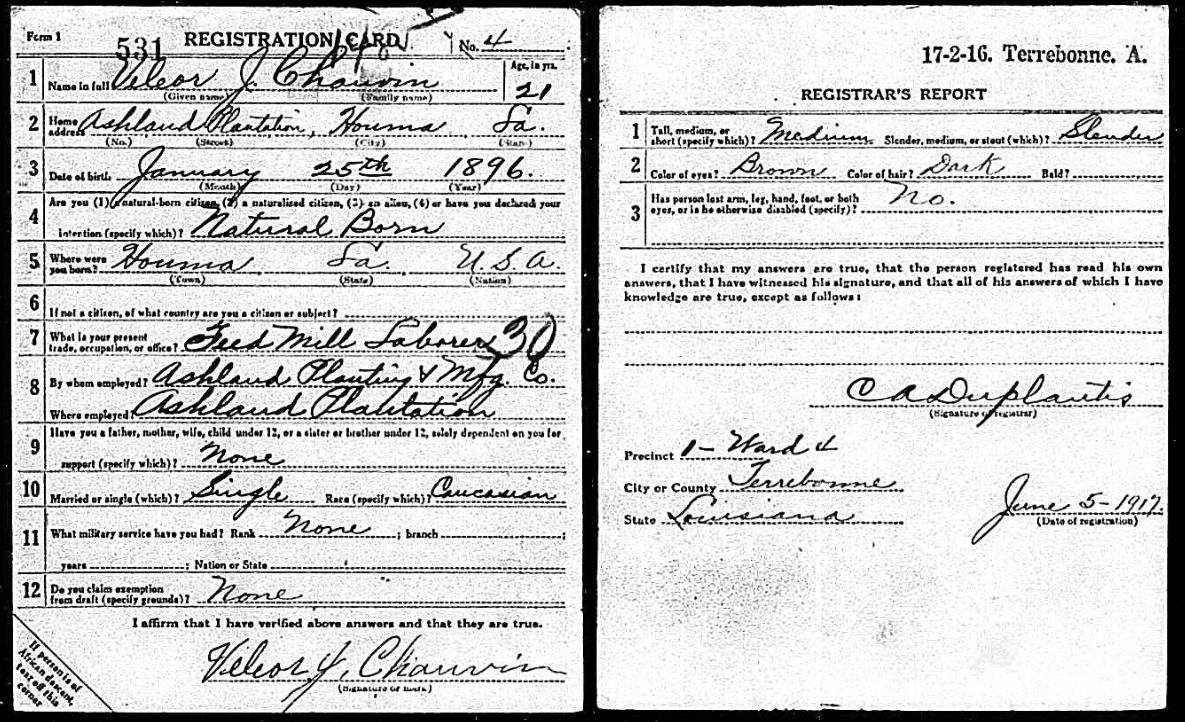 Form 1
531 REGISTRATION CARD No. 4
1 Name in full Velcor J. Chauvin Age, in yrs. 21
(Given name) (Family name)
2 Home address Ashland Plantation, Houma La.
(No.) (Street) (City) (State)
3 Date of birth January 25th 1896.
(Month) (Day) (Year)
4 Are you (1) a natural-born citizen, (2) a naturalized citizen, (3) an alien, (4) or have you declared your
intention (specify which)? Natural Born
5 Where were you born? Houma La. U.S.A.
(Town) (State) (Nation)
6 If not a citizen, of what country are you a citizen or subject?
7 What is your present trade, occupation, or office? Feed Mill Laborer 30
8 By whom employed? Ashland Planting & Mfg. Co.
Where employed? Ashland Plantation
9 Have you a father, mother, wife, child under 12, or a sister or brother under 12, solely dependent on you for
support (specify which)? None
10 Married or single (which)? Single Race (specify which)? Caucasian
11 What military service have you had? Rank None ; branch ;
years ; Nation or State
12 Do you claim exemption from draft (specify grounds)? None
I affirm that I have verified above answers and that they are true.
Velcor J. Chauvin
(Signature or mark)
If person is of
African descent,
tear off this
corner
17-2-16. Terrebonne. A.
REGISTRAR'S REPORT
1 Tall, medium, or short (specify which)? Medium Slender, medium, or stout (which)? Slender
2 Color of eyes? Brown Color of hair? Dark Bald?
3 Has person lost arm, leg, hand, foot, or both eyes, or is he otherwise disabled (specify)? No.
I certify that my answers are true, that the person registered has read his own
answers, that I have witnessed his signature, and that all of his answers of which I have
knowledge are true, except as follows:
C A Duplantis
(Signature of registrar)
Precinct 1 - Ward 4
City or County Terrebonne
State Louisiana
June 5 - 1917.
(Date of registration)